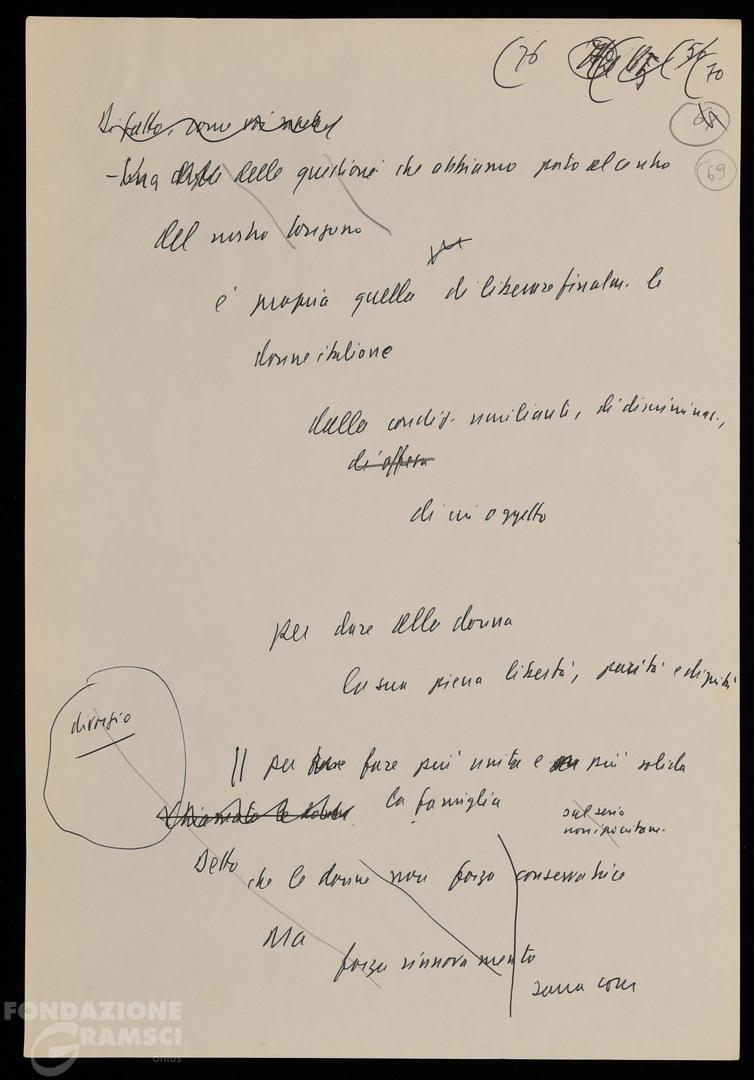 (76 (70
69
Di fatto, come
- Una delle questioni che abbiamo posto al centro
del nostro
è propria quella di liberare finalm. le
donne italiane
dalla condiz. umilianti, di discriminaz.,
di offesa
di un oggetto
per dare alla donna
la sua piena libertà, parità e dignità
divorzio
|| per fare più unita e più solida
la famiglia
Chiamato le donne
sul serio
non ipocritam.
Detto che le donne non forza conservatrice
Ma
forza rinnovamento
sarà così
FONDAZIONE
GRAMSCI
onlus